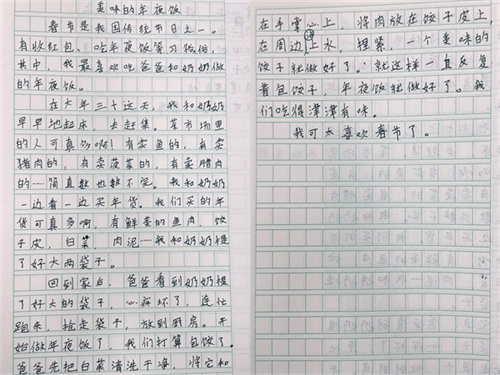 美味的年夜饭
春节是我国传统节日之一。
有收红包、吃年夜饭等习俗,
其中,我最喜欢吃爸爸和奶奶做
的年夜饭。
在大年三十这天,我和奶奶
早早地起床,去赶集。菜市场里
的人可真多啊!有卖鱼的,有卖
猪肉的,有卖菠菜的,有卖腊肉
的……简直数也数不完。我和奶奶
一边看一边买年货。我们买的年
货可真多啊,有鲜美的鱼肉,饺
子皮,白菜,肉泥……我和奶奶提
了好大两袋子。
回到家后,爸爸看到奶奶提
了好大的袋子,心疼坏了,连忙
跑来,抢走袋子,放到厨房。开
始做年夜饭了,我们打算包饺子。
爸爸先把白菜清洗干净,将它和
在手掌心上,将肉放在饺子皮上
在周边上水,捏紧,一个美味的
饺子就做好了。就这样一直反复
着包饺子,年夜饭就做好了。我
们吃得津津有味。
我可太喜欢春节了。